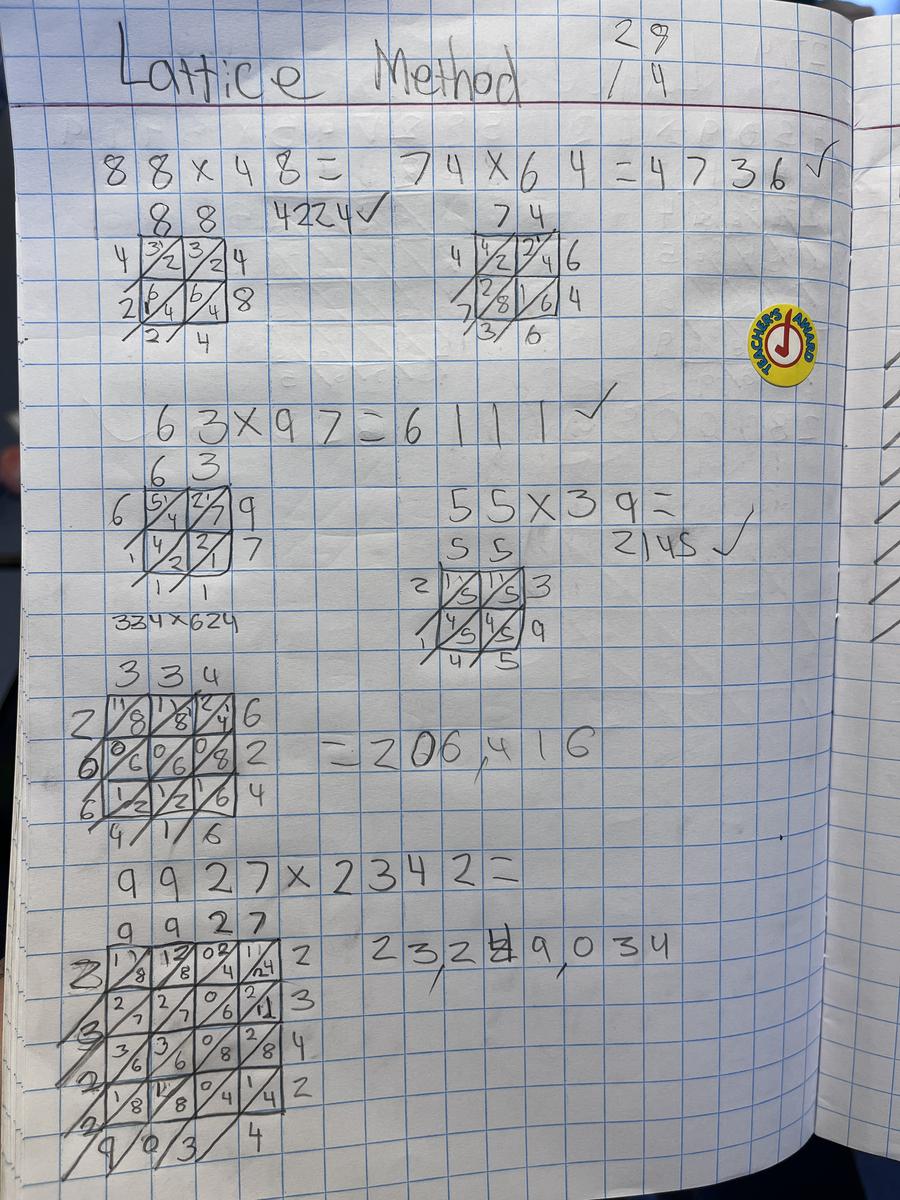 Lattice Method
29
/4
88×48= 74×64=4736✓
4224✓
8 8
4 3 2 3 2 4
2 6 4 6 4 8
2 4
7 4
4 4 2 2 4 6
7 2 8 1 6 4
3 6
TEACHER'S AWARD
63×97=6111✓
6 3
6 5 4 2 7 9
1 4 2 2 1 7
1 1
55×39=
2145✓
5 5
2 1 5 1 5 3
1 4 5 4 5 9
4 5
334×624
3 3 4
2 1 8 1 8 2 4 6
0 0 6 0 6 0 8 2
6 1 2 1 2 1 6 4
4 1 6
=206,416
9927×2342=
9 9 2 7
1 8 1 8 0 4 1 4 2
3 2 7 2 7 0 6 2 1 3
2 3 6 3 6 0 8 2 8 4
2 1 8 1 8 0 4 1 4 2
9 0 3 4
23,249,034